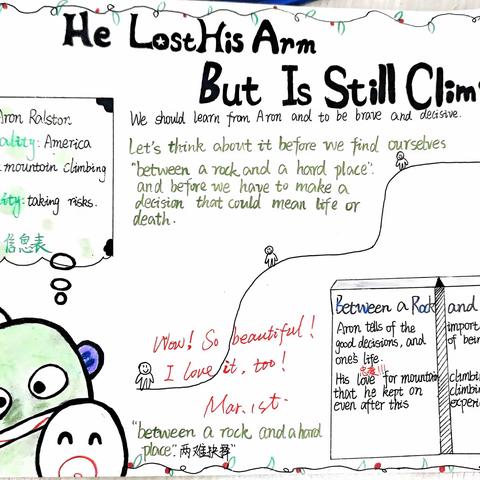 He Lost His Arm
But Is Still Clim
Aron Ralston
ality: America
mountain climbing
ity: taking risks.
信息表
We should learn from Aron and to be brave and decisive.
Let's think about it before we find ourselves
"between a rock and a hard place".
and before we have to make a
decision that could mean life or
death.
Wow! So beautiful!
I love it, too!
Mar. 1st.
"between a rock and a hard
place": 两难抉择"
Between a Rock and
Aron tells of the
good decisions, and
one's life.
His love for mountain
that he kept on
even after this
import
of bein
climbin
climbin
experi